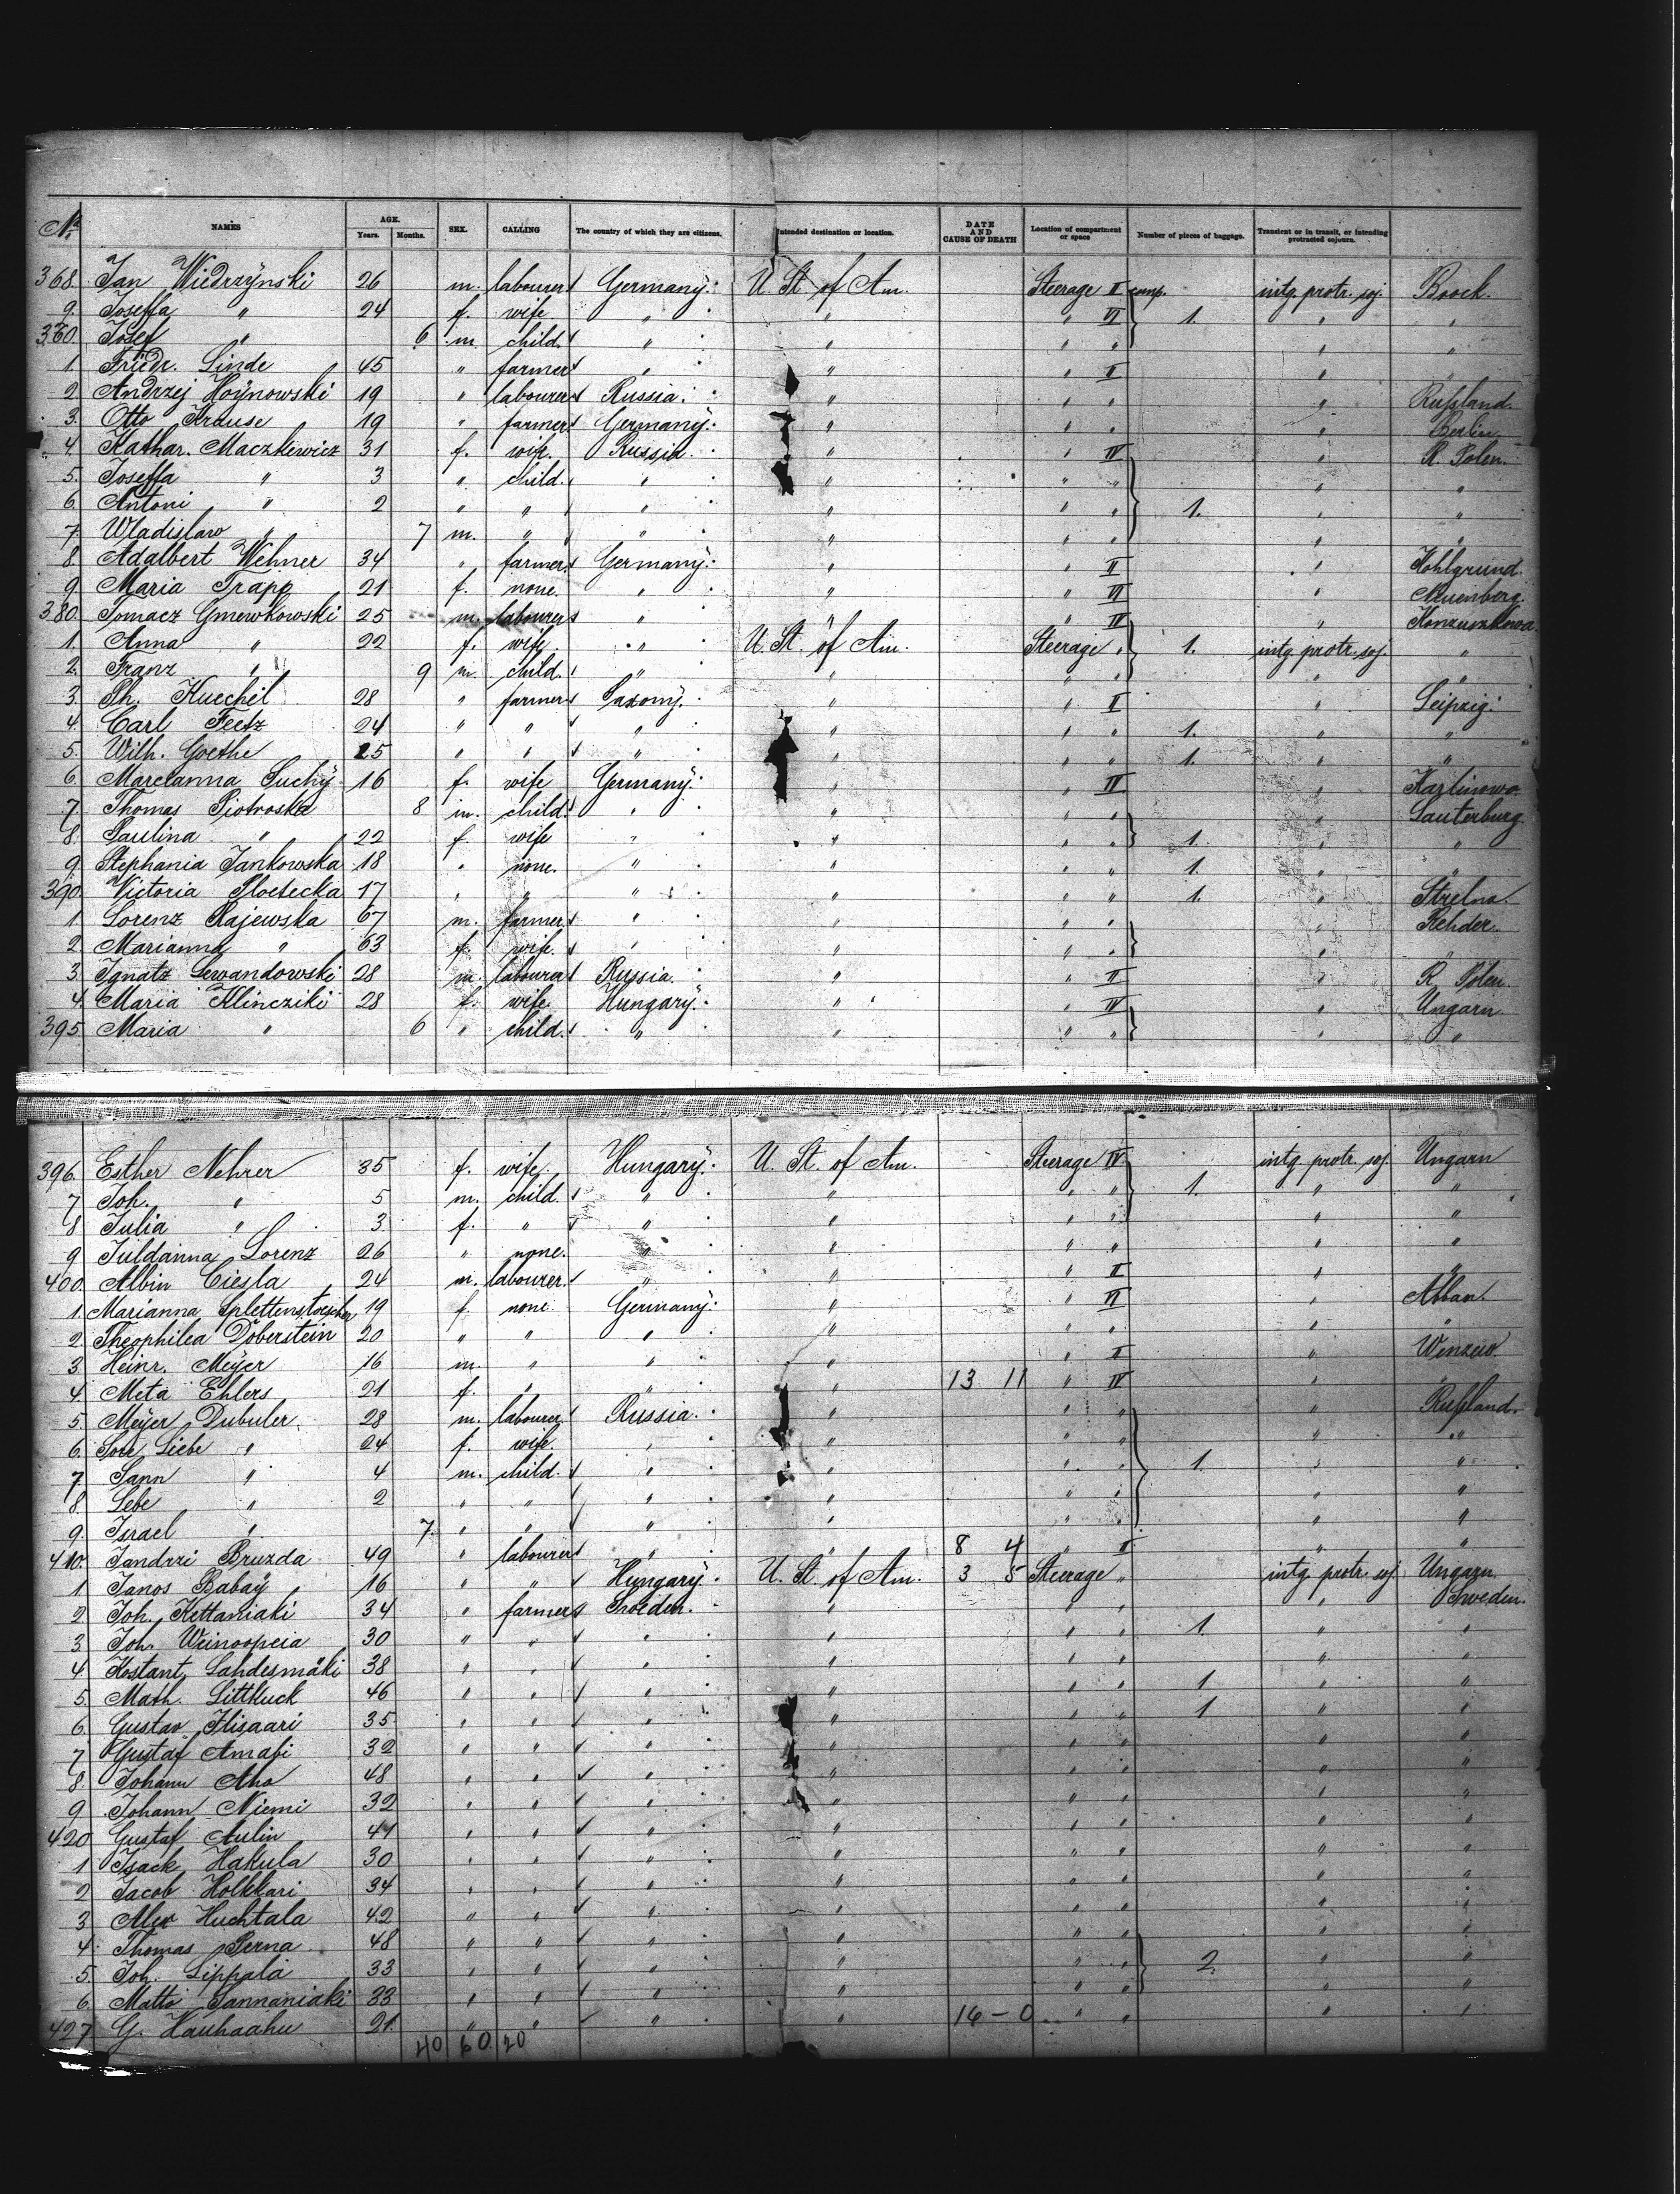 No. NAMES AGE. Years. Months. SEX. CALLING The country of which they are citizens. Intended destination or location. DATE AND CAUSE OF DEATH Location of compartment or space Number of pieces of baggage. Transient or in transit, or intending protracted sojourn.
368. Jan Wiedrzynski 26 m. labourer Germany. U. St. of Am. Steerage II comp. intg. protr. soj. Boock.
9. Joseffa " 24 f. wife " " " VI 1. " "
370. Josef " 6 m. child. " " " " " "
1. Friedr. Linde 45 " farmer " " " II " "
2. Andrzej Hoynowski 19 " labourer Russia. " " " " Rußland.
3. Otto Krause 19 " farmer Germany. " " " " Berlin.
4. Kathar. Maczkewicz 31 f. wife. Russia. " " IV " R. Polen.
5. Joseffa " 3 " child. " " " " " "
6. Antoni " 2 " " " " " " 1. " "
7. Wladislaw " 7 m. " " " " " " "
8. Adalbert Wehner 34 " farmer Germany. " " II " Kohlgrund.
9. Maria Trapp 21 f. none. " " " VI " Neuenberg.
380. Tomacz Gmewkowski 25 m. labourer " " IV "
1. Anna " 22 f. wife " U. St. of Am. Steerage " 1. intg. protr. soj. "
2. Franz " 9 m. child. " " " " " "
3. Ph. Kuechel 28 " farmer Saxony. " " II " Leipzig.
4. Carl Feetz 24 " " " " " " 1. " "
5. Wilh. Goethe 25 " " " " " " 1. " "
6. Marcianna Suchy 16 f. wife Germany. " " IV " Karlinowo.
7. Thomas Piotroska 8 m. child. " " " " " Lauterburg.
8. Paulina " 22 f. wife " " " " 1. " "
9. Stephania Jankowska 18 " none. " " " " 1. " "
390. Victoria Ploetecka 17 " " " " " " 1. " Strelno.
1. Lorenz Rajewska 67 m. farmer " " " " " Rehder.
2. Marianna " 63 f. wife. " " " " " "
3. Ignatz Lewandowski 28 m. labourer Russia. " " II " R. Polen.
4. Maria Klincziki 28 f. wife Hungary. " " IV " Ungarn.
395. Maria " 6 " child. " " " " " "
396. Esther Nehrer 35 f. wife. Hungary. U. St. of Am. Steerage IV intg. protr. soj. Ungarn
7 Joh. " 5 m. child. " " " " 1. " "
8 Julia " 3 f. " " " " " " "
9 Juldanna Lorenz 26 " none. " " " " " "
400. Albin Ciesla 24 m. labourer. " " " II " "
1. Marianna Splettenstoesher 19 f. none Germany. " " VI " Abban.
2. Theophilea Doberstein 20 " " " " " " " "
3. Heinr. Meyer 16 m. " " " " II " Wenzew.
4. Meta Ehlers 21 f. " " " 13 11 " IV " "
5. Meyer Dubuler 28 m. labourer Russia. " " " " Rußland.
6. Sore Liebe " 24 f. wife. " " " " " "
7. Sann " 4 m. child. " " " " 1. " "
8. Lebe " 2 " " " " " " " "
9. Israel " 7. " " " " " " " "
410. Jandrzi Bruzda 49 " labourer " " 8 4 " II " "
1 Janos Babay 16 " " Hungary. U. St. of Am. 3 5 Steerage " intg. protr. soj. Ungarn.
2 Joh. Kettaniaki 34 " farmer Sweden. " " " " Sweden.
3 Joh. Weinoopeia 30 " " " " " " 1. " "
4. Kostant. Lahdesmäki 38 " " " " " " " "
5. Math. Littkuck 46 " " " " " " 1 " "
6. Gustav Ilisaari 35 " " " " " " 1 " "
7 Gustaf Amafi 32 " " " " " " " "
8. Johann Aho 48 " " " " " " " "
9 Johann Niemi 32 " " " " " " " "
420 Gustaf Aulin 41 " " " " " " " "
1 Isack Hakula 30 " " " " " " " "
2 Jacob Holkkari 34 " " " " " " " "
3 Alex Huchtala 42 " " " " " " " "
4. Thomas Perna 48 " " " " " " " "
5. Joh. Lippala 33 " " " " " " 2. " "
6. Matts Sannaniaki 33 " " " " " " " "
427 G. Hauhaahu 21. " " " " 16 – 0 " " " "
40 60 20